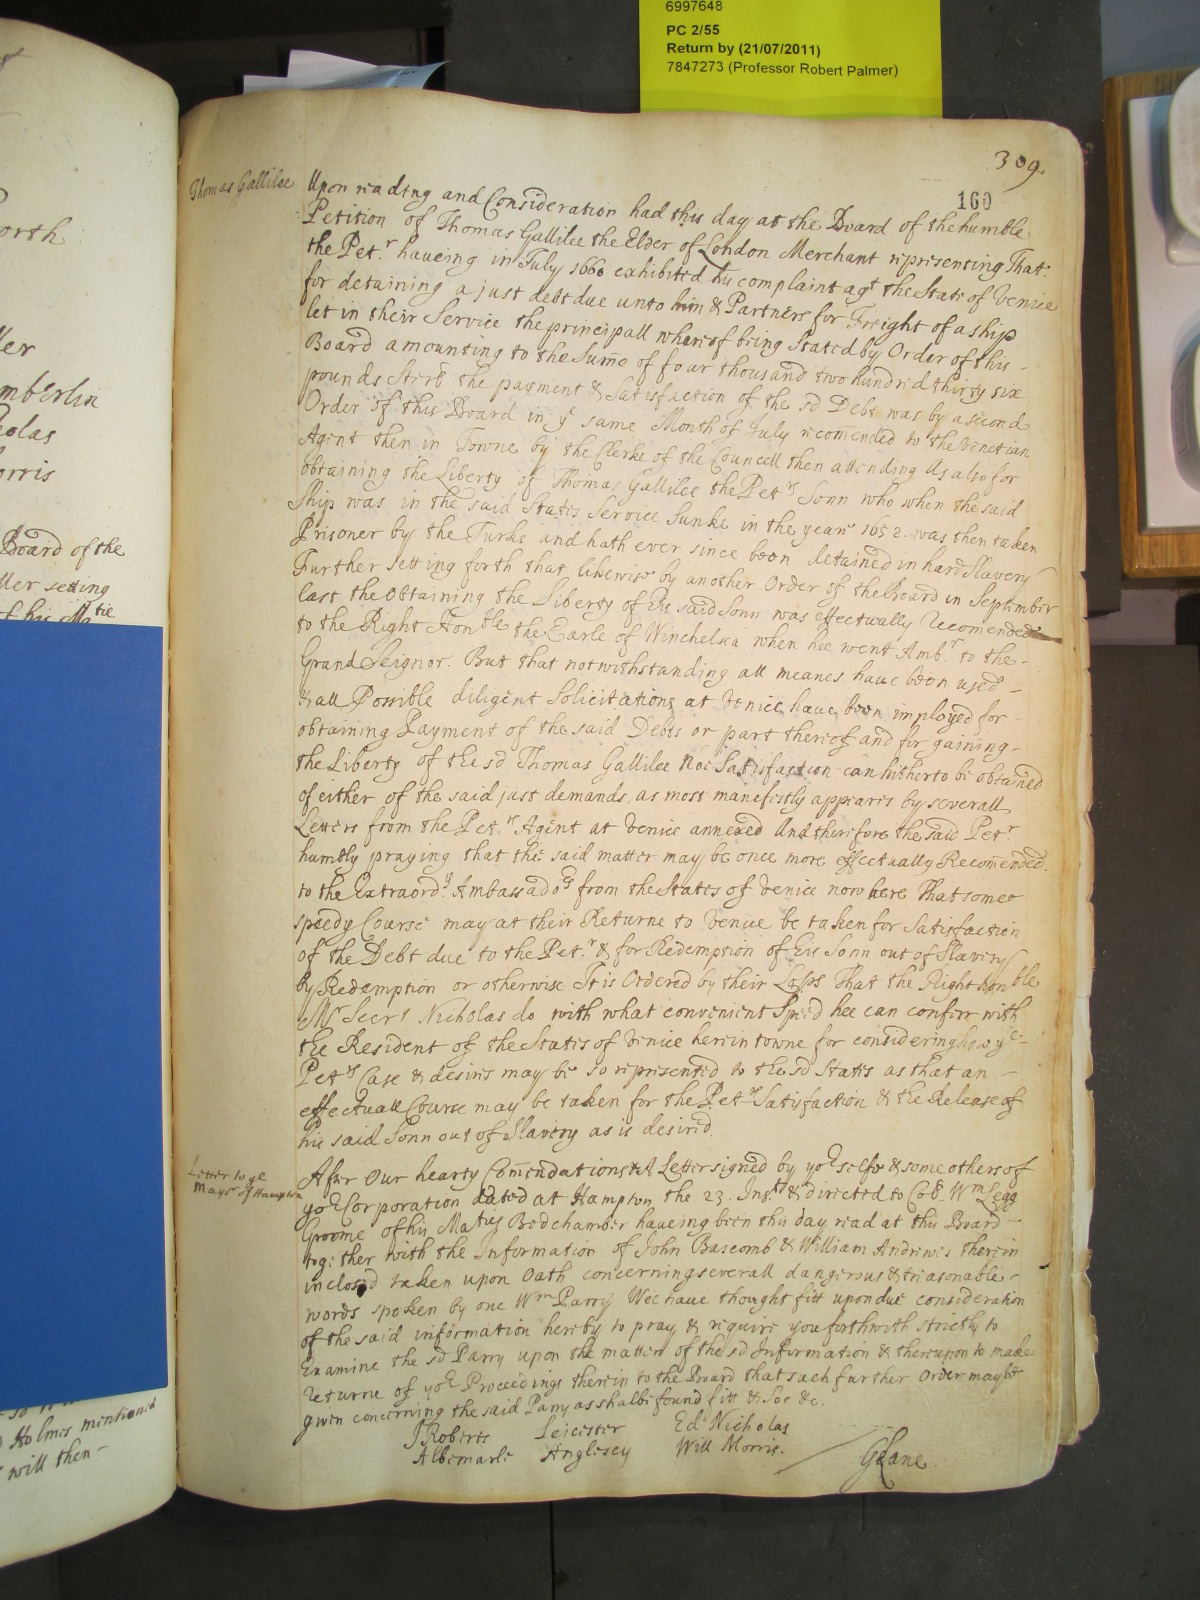 6997648
PC 2/55
Return by (21/07/2011)
7847273 (Professor Robert Palmer)
orth
ller
mberlin
holas
orris
Board of the
ller setting
f his Matie
Holmes mentioned
will then-
309.
160
Thomas Gallilee
Upon reading and Consideration had this day at the Board of the humble
Petition of Thomas Gallilee the Elder of London Merchant representing That
the Petr. haveing in July 1660 exhibited his complaint agt the State of Venice
for detaining a just debt due unto him & Partners for Freight of a ship
let in their Service the principall whereof being Stated by Order of this -
Board amounting to the Sume of four thousand two hundred thirty six
pounds Sterl the payment & Satisfaction of the sd Debt was by a second
Order of this Board in ye same Month of July recomended to the Venetian
Agent then in Towne by the Clerke of the Councell then attending As also for
obtaining the Liberty of Thomas Gallilee the Petrs Sonn who when the said
Ship was in the said States Service Sunke in the yeare 1652 was then taken
Prisoner by the Turks and hath ever since been detained in hard Slavery
Further setting forth that likewise by another Order of the Board in September
last the Obtaining the Liberty of his said Sonn was effectually Recomended
to the Right Honble the Earle of Winchelsea when hee went Ambr to the -
Grand Seignor. But that notwithstanding all meanes have been used -
& all Possible diligent Solicitations at Venice have been imployed for
obtaining Payment of the said Debts or part thereof and for gaining -
the Liberty of the sd Thomas Gallilee Noe Satisfaction can hitherto be obtained
of either of the said just demands, as most manefestly appeares by severall
Letters from the Petrs Agent at Venice annexed And therefore the said Petr
humbly praying that the said matter may be once more effectually Recomended
to the Extraordy Ambassadors from the States of Venice now here That somee
speedy Course may at their Returne to Venice be taken for Satisfaction
of the Debt due to the Petr. & for Redemption of his Sonn out of Slavery
by Redemption or otherwise It is Ordered by their Lopps That the Right honble
Mr Secry Nicholas do with what convenient Speed hee can conferr with
the Resident of the States of Venice here in towne for considering how ye -
Petrs Case & desires may be so represented to the sd States as that an -
effectuall Course may be taken for the Petrs Satisfaction & the Release of
his said Sonn out of Slavery as is desired.
Letter to ye
Mayor of Hampton
After Our hearty Comendations A Letter signed by yor selfe & some others of
yor Corporation dated at Hampton the 23. Inst & directed to Col. Wm Legg
Groome of his Maties Bedchamber haveing been this day read at this Board -
together with the Information of John Bascomb & William Andrewes therein
inclosed taken upon Oath concerning severall dangerous & treasonable -
words spoken by one Wm Parry Wee have thought fitt upon due consideration
of the said information hereby to pray & require you forthwith strictly to
Examine the sd Parry upon the matter of the sd Information & thereupon to make
returne of yor Proceedings therein to the Board that such further Order may be
given concerning the said Parry as shalbe found fitt & Soe &c.
J Roberts Leicester Ed Nicholas
Albemarle Anglesey Will Morris.
G Lane